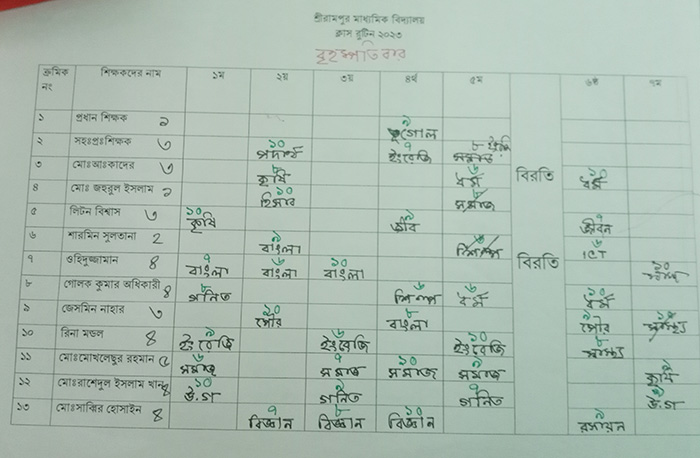 শ্রীরামপুর মাধ্যমিক বিদ্যালয়
ক্লাস রুটিন ২০২৩
বৃহস্পতিবার
ক্রমিক নং শিক্ষকদের নাম ১ম ২য় ৩য় ৪র্থ ৫ম ৬ষ্ঠ ৭ম
১ প্রধান শিক্ষক ১ ৯ ভূগোল
২ সহঃপ্রঃশিক্ষক ৩ ১০ পদার্থ ৭ ইংরেজি ৮
৩ মোঃআঃকাদের ৩ ৮ কৃষি ৬ ধর্ম বিরতি ১০ ধর্ম
৪ মোঃ জহুরুল ইসলাম ১০ হিসাব ৮ সমাজ
৫ লিটন বিশ্বাস ৩ ১০ কৃষি ৯ জীব ৭ জীবন
৬ শারমিন সুলতানা 2 ৯ বাংলা ৬ ICT
৭ ওহিদুজ্জামান 8 ৭ বাংলা ৬ বাংলা ১০ বাংলা বিরতি ১০
৮ গোলক কুমার অধিকারী 8 ৮ গনিত ৬ শিল্প ৬ ধর্ম ১০ ধর্ম
৯ জেসমিন নাহার ৩ ১০ পৌর ৮ বাংলা ৯ পৌর
১০ রিনা মন্ডল 8 ৯ ইংরেজি ৬ ইংরেজি ১০ ইংরেজি ৮
১১ মোঃমোখলেছুর রহমান ৬ সমাজ ৭ সমাজ ১০ সমাজ ৯ সমাজ কৃষি
১২ মোঃরাশেদুল ইসলাম খান ১০ উ.গ ৯ গনিত ৭ গনিত ৯ উ.গ
১৩ মোঃসাব্বির হোসাইন 8 ৭ বিজ্ঞান ৮ বিজ্ঞান ১০ বিজ্ঞান ৯ রসায়ন